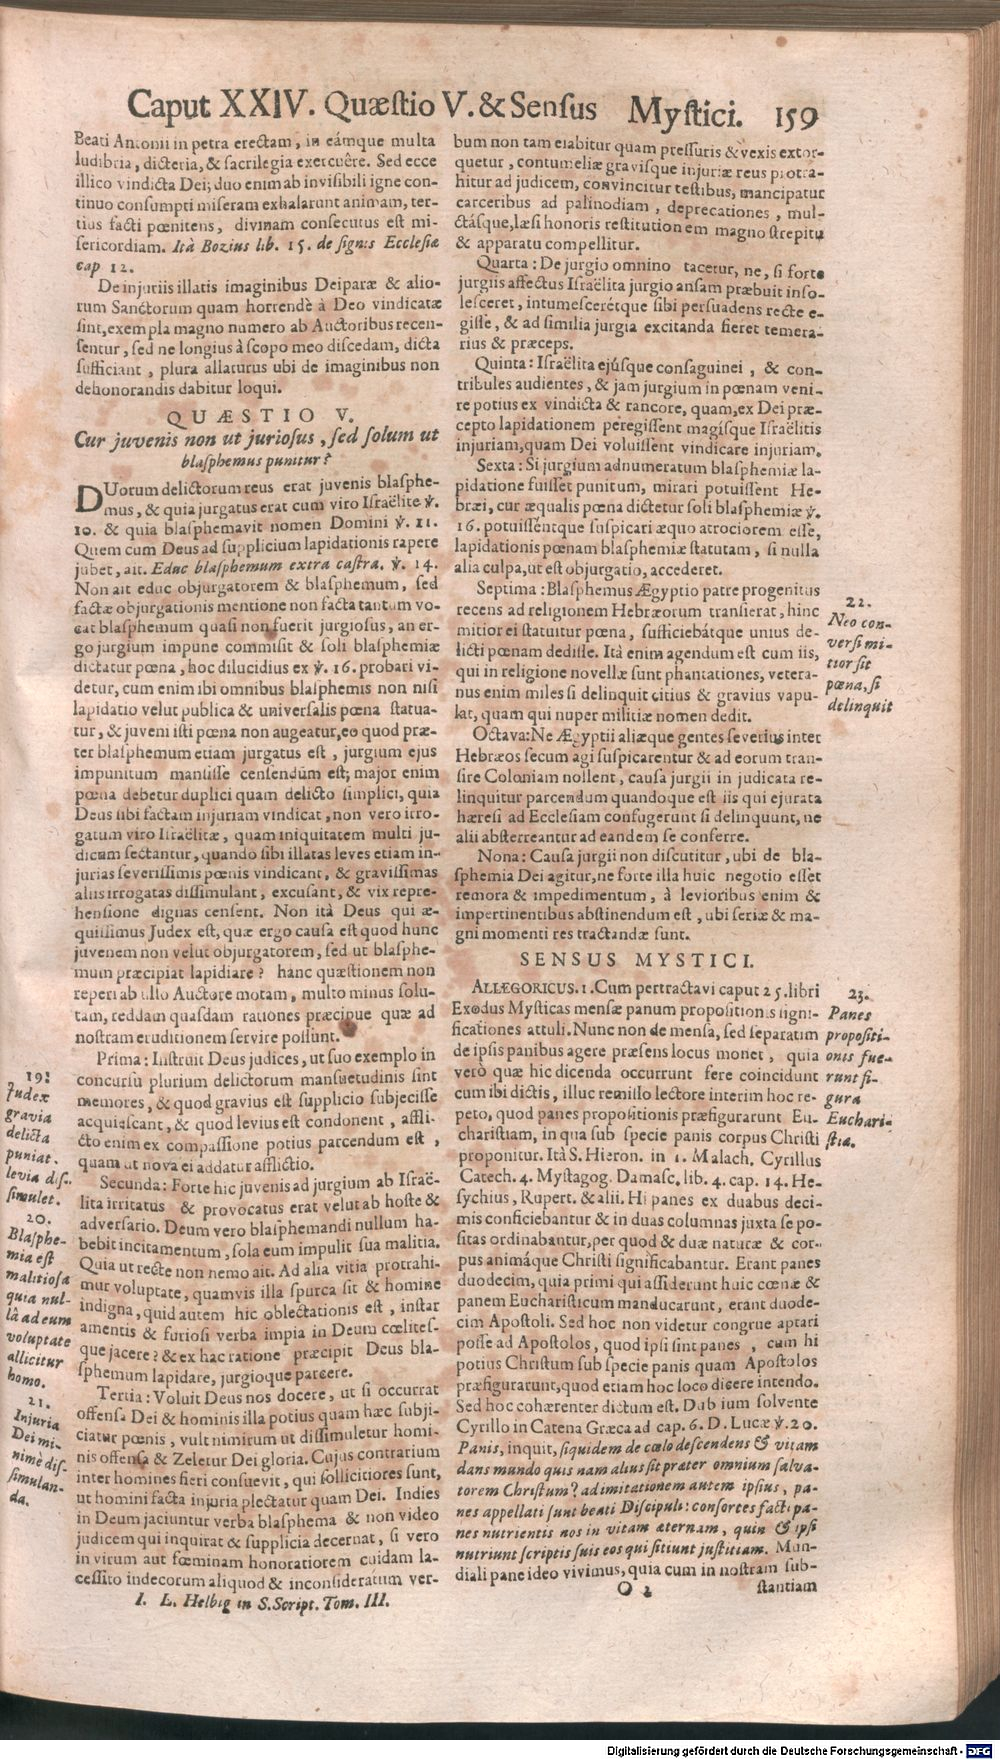 Caput XXIV. Quæstio V. & Sensus Mystici. 159
Beati Antonii in petra erectam, in eámque multa
ludibria, dicteria, & sacrilegia exercuêre. Sed ecce
illico vindicta Dei; duo enim ab invisibili igne con-
tinuo consumpti miseram exhalarunt animam, ter-
tius facti pœnitens, divinam consecutus est mi-
sericordiam. Ità Bozius lib. 15. de signis Ecclesiæ
cap 12.
De injuriis illatis imaginibus Deiparæ & alio-
rum Sanctorum quam horrendè à Deo vindicatæ
sint, exempla magno numero ab Auctoribus recen-
sentur, sed ne longius à scopo meo discedam, dicta
sufficiant, plura allaturus ubi de imaginibus non
dehonorandis dabitur loqui.
QUÆSTIO V.
Cur juvenis non ut juriosus, sed solum ut
blasphemus punitur?
DUorum delictorum reus erat juvenis blasphe-
mus, & quia jurgatus erat cum viro Israëlite ℣.
10. & quia blasphemavit nomen Domini ℣. 11.
Quem cum Deus ad supplicium lapidationis rapere
jubet, ait. Educ blasphemum extra castra. ℣. 14.
Non ait educ objurgatorem & blasphemum, sed
factæ objurgationis mentione non facta tantum vo-
cat blasphemum quasi non fuerit jurgiosus, an er-
go jurgium impune commisit & soli blasphemiæ
dictatur pœna, hoc dilucidius ex ℣. 16. probari vi-
detur, cum enim ibi omnibus blasphemis non nisi
lapidatio velut publica & universalis pœna statua-
tur, & juveni isti pœna non augeatur, eo quod præ-
ter blasphemum etiam jurgatus est, jurgium ejus
impunitum mansisse censendum est; major enim
pœna debetur duplici quam delicto simplici, quia
Deus sibi factam injuriam vindicat, non vero irro-
gatum viro Israëlitæ, quam iniquitatem multi ju-
dicum sectantur, quando sibi illatas leves etiam in-
jurias severissimis pœnis vindicant, & gravissimas
aliis irrogatas dissimulant, excusant, & vix repre-
hensione dignas censent. Non ità Deus qui æ-
quissimus Judex est, quæ ergo causa est quod hunc
juvenem non velut objurgatorem, sed ut blasphe-
mum præcipiat lapidiare? hanc quæstionem non
reperi ab ullo Auctore motam, multo minus solu-
tam, reddam quasdam rationes præcipue quæ ad
nostram eruditionem servire possunt.
Prima: Instruit Deus judices, ut suo exemplo in
concursu plurium delictorum mansuetudinis sint
memores, & quod gravius est supplicio subjecisse
acquiescant, & quod levius est condonent, affli-
cto enim ex compassione potius parcendum est,
quam ut nova ei addatur afflictio.
Secunda: Forte hic juvenis ad jurgium ab Israë-
lita irritatus & provocatus erat velut ab hoste &
adversario. Deum vero blasphemandi nullum ha-
bebit incitamentum, sola eum impulit sua malitia.
Quia ut recte non nemo ait. Ad alia vitia protrahi-
mur voluptate, quamvis illa spurca sit & homine
indigna, quid autem hic oblectationis est, instar
amentis & furiosi verba impia in Deum cœlites-
que jacere? & ex hac ratione præcipit Deus bla-
sphemum lapidare, jurgioque parcere.
Tertia: Voluit Deus nos docere, ut si occurrat
offensa Dei & hominis illa potius quam hæc subji-
ciatur pœnis, vult nimirum ut dissimuletur homi-
nis offensa & Zeletur Dei gloria. Cujus contrarium
inter homines fieri consuevit, qui sollicitiores sunt,
ut homini facta injuria plectatur quam Dei. Indies
in Deum jaciuntur verba blasphema & non video
judicem qui inquirat & supplicia decernat, si vero
in virum aut fœminam honoratiorem cuidam la-
cessito indecorum aliquod & inconsideratum ver-
I. L. Helbig in S. Script. Tom. III.
19.
Judex
gravia
delicta
puniat.
levia dis-
simulet.
20.
Blasphe-
mia est
malitiosa
quia nul-
lâ ad eum
voluptate
allicitur
homo.
21.
Injuria
Dei mi-
nimè dis-
simulan-
da.
bum non tam elabitur quam pressuris & vexis extor-
quetur, contumeliæ gravisque injuriæ reus protra-
hitur ad judicem, convincitur testibus, mancipatur
carceribus ad palinodiam, deprecationes, mul-
ctásque, læsi honoris restitutionem magno strepitu
& apparatu compellitur.
Quarta: De jurgio omnino tacetur, ne, si forte
jurgiis affectus Israëlita jurgio ansam præbuit inso-
lesceret, intumescerétque sibi persuadens recte e-
gisse, & ad similia jurgia excitanda fieret temera-
rius & præceps.
Quinta: Israëlita ejúsque consaguinei, & con-
tribules audientes, & jam jurgium in pœnam veni-
re potius ex vindicta & rancore, quam, ex Dei præ-
cepto lapidationem peregissent magisque Israëlitis
injuriam, quam Dei voluissent vindicare injuriam.
Sexta: Si jurgium adnumeratum blasphemiæ la-
pidatione fuisset punitum, mirari potuissent He-
bræi, cur æqualis pœna dictetur soli blasphemiæ ℣.
16. potuissentque suspicari æquo atrociorem esse,
lapidationis pœnam blasphemiæ statutam, si nulla
alia culpa, ut est objurgatio, accederet.
Septima: Blasphemus Ægyptio patre progenitus
recens ad religionem Hebræorum transierat, hinc
mitior ei statuitur pœna, sufficiebátque unius de-
licti pœnam dedisse. Ità enim agendum est cum iis,
qui in religione novellæ sunt phantationes, vetera-
nus enim miles si delinquit citius & gravius vapu-
lat, quam qui nuper militiæ nomen dedit.
Octava: Ne Ægyptii aliæque gentes severius inter
Hebræos secum agi suspicarentur & ad eorum tran-
sire Coloniam nollent, causa jurgii in judicata re-
linquitur parcendum quandoque est iis qui ejurata
hæresi ad Ecclesiam confugerunt si delinquunt, ne
alii absterreantur ad eandem se conferre.
Nona: Causa jurgii non discutitur, ubi de bla-
sphemia Dei agitur, ne forte illa huic negotio esset
remora & impedimentum, à levioribus enim &
impertinentibus abstinendum est, ubi seriæ & ma-
gni momenti res tractandæ sunt.
SENSUS MYSTICI.
ALLEGORICUS. 1. Cum pertractavi caput 25. libri
Exodus Mysticas mensæ panum propositionis signi-
ficationes attuli. Nunc non de mensa, sed separatim
de ipsis panibus agere præsens locus monet, quia
verò quæ hic dicenda occurrunt fere coincidunt
cum ibi dictis, illuc remisso lectore interim hoc re-
peto, quod panes propositionis præfigurarunt Eu-
charistiam, in qua sub specie panis corpus Christi
proponitur. Ità S. Hieron. in 1. Malach. Cyrillus
Catech. 4. Mystagog. Damasc. lib. 4. cap. 14. He-
sychius, Rupert. & alii. Hi panes ex duabus deci-
mis conficiebantur & in duas columnas juxta se po-
sitas ordinabantur, per quod & duæ naturæ & cor-
pus animáque Christi significabantur. Erant panes
duodecim, quia primi qui assiderunt huic cœnæ &
panem Eucharisticum manducarunt, erant duode-
cim Apostoli. Sed hoc non videtur congrue aptari
posse ad Apostolos, quod ipsi sint panes, cum hi
potius Christum sub specie panis quam Apostolos
præfigurarunt, quod etiam hoc loco dicere intendo.
Sed hoc cohærenter dictum est. Dubium solvente
Cyrillo in Catena Græca ad cap. 6. D. Lucæ ℣. 20.
Panis, inquit, siquidem de cœlo descendens & vitam
dans mundo quis nam alius sit præter omnium salva-
torem Christum? ad imitationem autem ipsius, pa-
nes appellati sunt beati Discipuli: consortes facti pa-
nes nutrientis nos in vitam æternam, quin & ipsi
nutriunt scriptis suis eos qui sitiunt justitiam. Mun-
diali pane ideo vivimus, quia cum in nostram sub-
O 2 stantiam
22.
Neo con-
versi mi-
tior sit
pœna, si
delinquit
23.
Panes
propositi-
onis fue-
runt fi-
gura
Euchari-
stiæ.
Digitalisierung gefördert durch die Deutsche Forschungsgemeinschaft - DFG